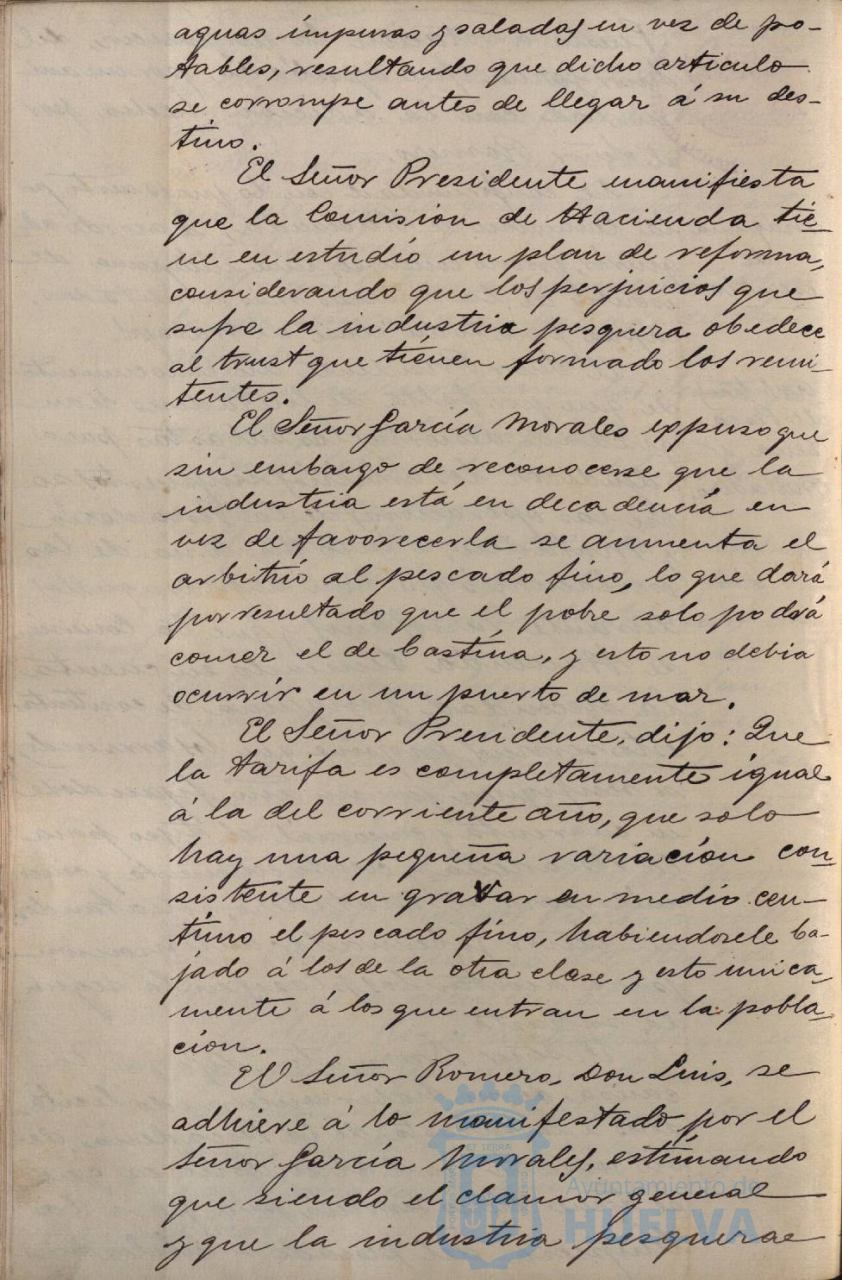 aguas impuras y saladas en vez de po-
tables, resultando que dicho articulo
se corrompe antes de llegar á su des-
tino.
El Señor Presidente manifiesta
que la Comisión de Hacienda tie-
ne en estudio un plan de reforma,
considerando que los perjuicios que
sufre la industria pesquera obedece
al trust que tienen formado los remi-
tentes.
El Señor García Morales expuso que
sin embargo de reconocerse que la
industria está en decadencia en
vez de favorecerla se aumenta el
arbitrio al pescado fino, lo que dará
por resultado que el pobre solo podrá
comer el de bastina, y esto no debia
ocurrir en un puerto de mar.
El Señor Presidente, dijo: Que
la tarifa es completamente igual
á la del corriente año, que solo
hay una pequeña variación con-
sistente en gravar en medio cen-
timo el pescado fino, habiendosele ba-
jado á los de la otra clase y esto unica-
mente á los que entran en la pobla-
cion.
El Señor Romero, Don Luis, se
adhiere á lo manifestado por el
Señor García Morales, estimando
que siendo el clamor general
y que la industria pesquera
Ayuntamiento de
HUELVA